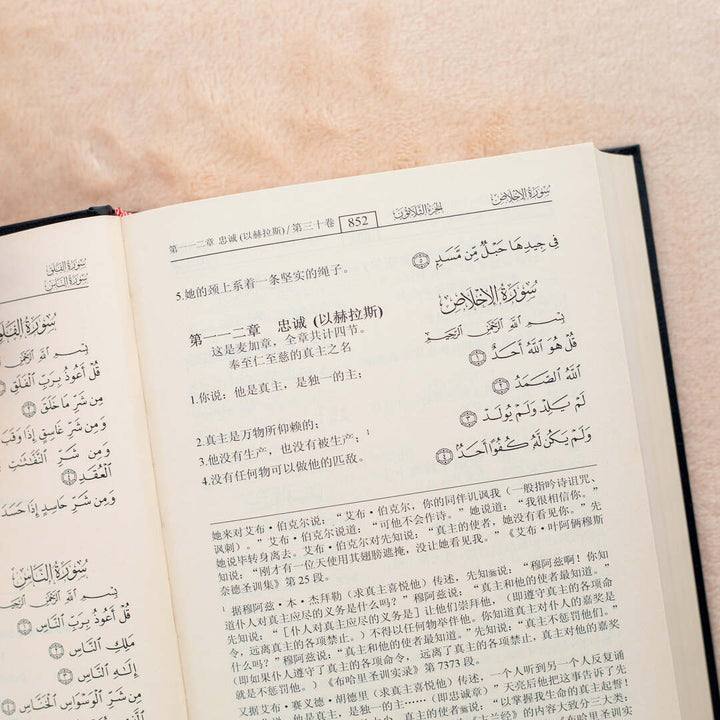 سُورَةُ الفَلَقِ
سُورَةُ النَّاسِ
سُورَةُ الفَلَقِ
بِسْمِ اللَّهِ الرَّحْمَٰنِ
قُلْ أَعُوذُ بِرَبِّ الْفَلَقِ ١
مِن شَرِّ مَا خَلَقَ ٢
وَمِن شَرِّ غَاسِقٍ إِذَا وَقَبَ
وَمِن شَرِّ النَّفَّاثَاتِ
الْعُقَدِ ٤
وَمِن شَرِّ حَاسِدٍ إِذَا حَسَدَ
سُورَةُ النَّاسِ
بِسْمِ اللَّهِ الرَّحْمَٰنِ الرَّحِيمِ
قُلْ أَعُوذُ بِرَبِّ النَّاسِ ١
مَلِكِ النَّاسِ ٢
إِلَٰهِ النَّاسِ ٣
مِن شَرِّ الْوَسْوَاسِ الْخَنَّاسِ
第一一二章 忠诚 (以赫拉斯) / 第三十卷 852 الجزء الثلاثون سُورَةُ الإِخْلَاصِ
5.她的颈上系着一条坚实的绳子。
第一一二章 忠诚 (以赫拉斯)
这是麦加章，全章共计四节。
奉至仁至慈的真主之名
1.你说：他是真主，是独一的主；
2.真主是万物所仰赖的；
3.他没有生产，也没有被生产；1
4.没有任何物可以做他的匹敌。
فِي جِيدِهَا حَبْلٌ مِّن مَّسَدٍ ٥
سُورَةُ الإِخْلَاصِ
بِسْمِ اللَّهِ الرَّحْمَٰنِ الرَّحِيمِ
قُلْ هُوَ اللَّهُ أَحَدٌ ١
اللَّهُ الصَّمَدُ ٢
لَمْ يَلِدْ وَلَمْ يُولَدْ ٣
وَلَمْ يَكُن لَّهُ كُفُوًا أَحَدٌ ٤
她来对艾布·伯克尔说：“艾布·伯克尔，你的同伴讥讽我（一般指吟诗诅咒、
讽刺）。”艾布·伯克尔说道：“可他不会作诗。”她说道：“我很相信你。”
她说毕转身离去。艾布·伯克尔对先知说：“真主的使者，她没有看见你。”先
知说：“刚才有一位天使用其翅膀遮掩，没让她看见我。”《艾布·叶阿俩穆斯
奈德圣训集》第 25 段。
1 据穆阿兹·本·杰拜勒（求真主喜悦他）传述，先知说：“穆阿兹啊！你知
道仆人对真主应尽的义务是什么吗？”穆阿兹说：“真主和他的使者最知道。”
先知说：“［仆人对真主应尽的义务是］让他们崇拜他，（即遵守真主的各项命
令，远离真主的各项禁止。）不得以任何物举伴他。你知道真主对仆人的嘉奖是
什么吗？”穆阿兹说：“真主和他的使者最知道。”先知说：“真主不惩罚他们。”
（即如果仆人遵守了真主的各项命令，远离了真主的各项禁止，真主对他的嘉奖
就是不惩罚他。）《布哈里圣训实录》第 7373 段。
又据艾布·赛义德·胡德里（求真主喜悦他）传述，一个人听到另一个人反复诵
他是真主，是独一的主……（即忠诚章）”天亮后他把这事告诉了先
“以掌握我生命的真主起誓！
《古兰经》的内容大致分三大类：